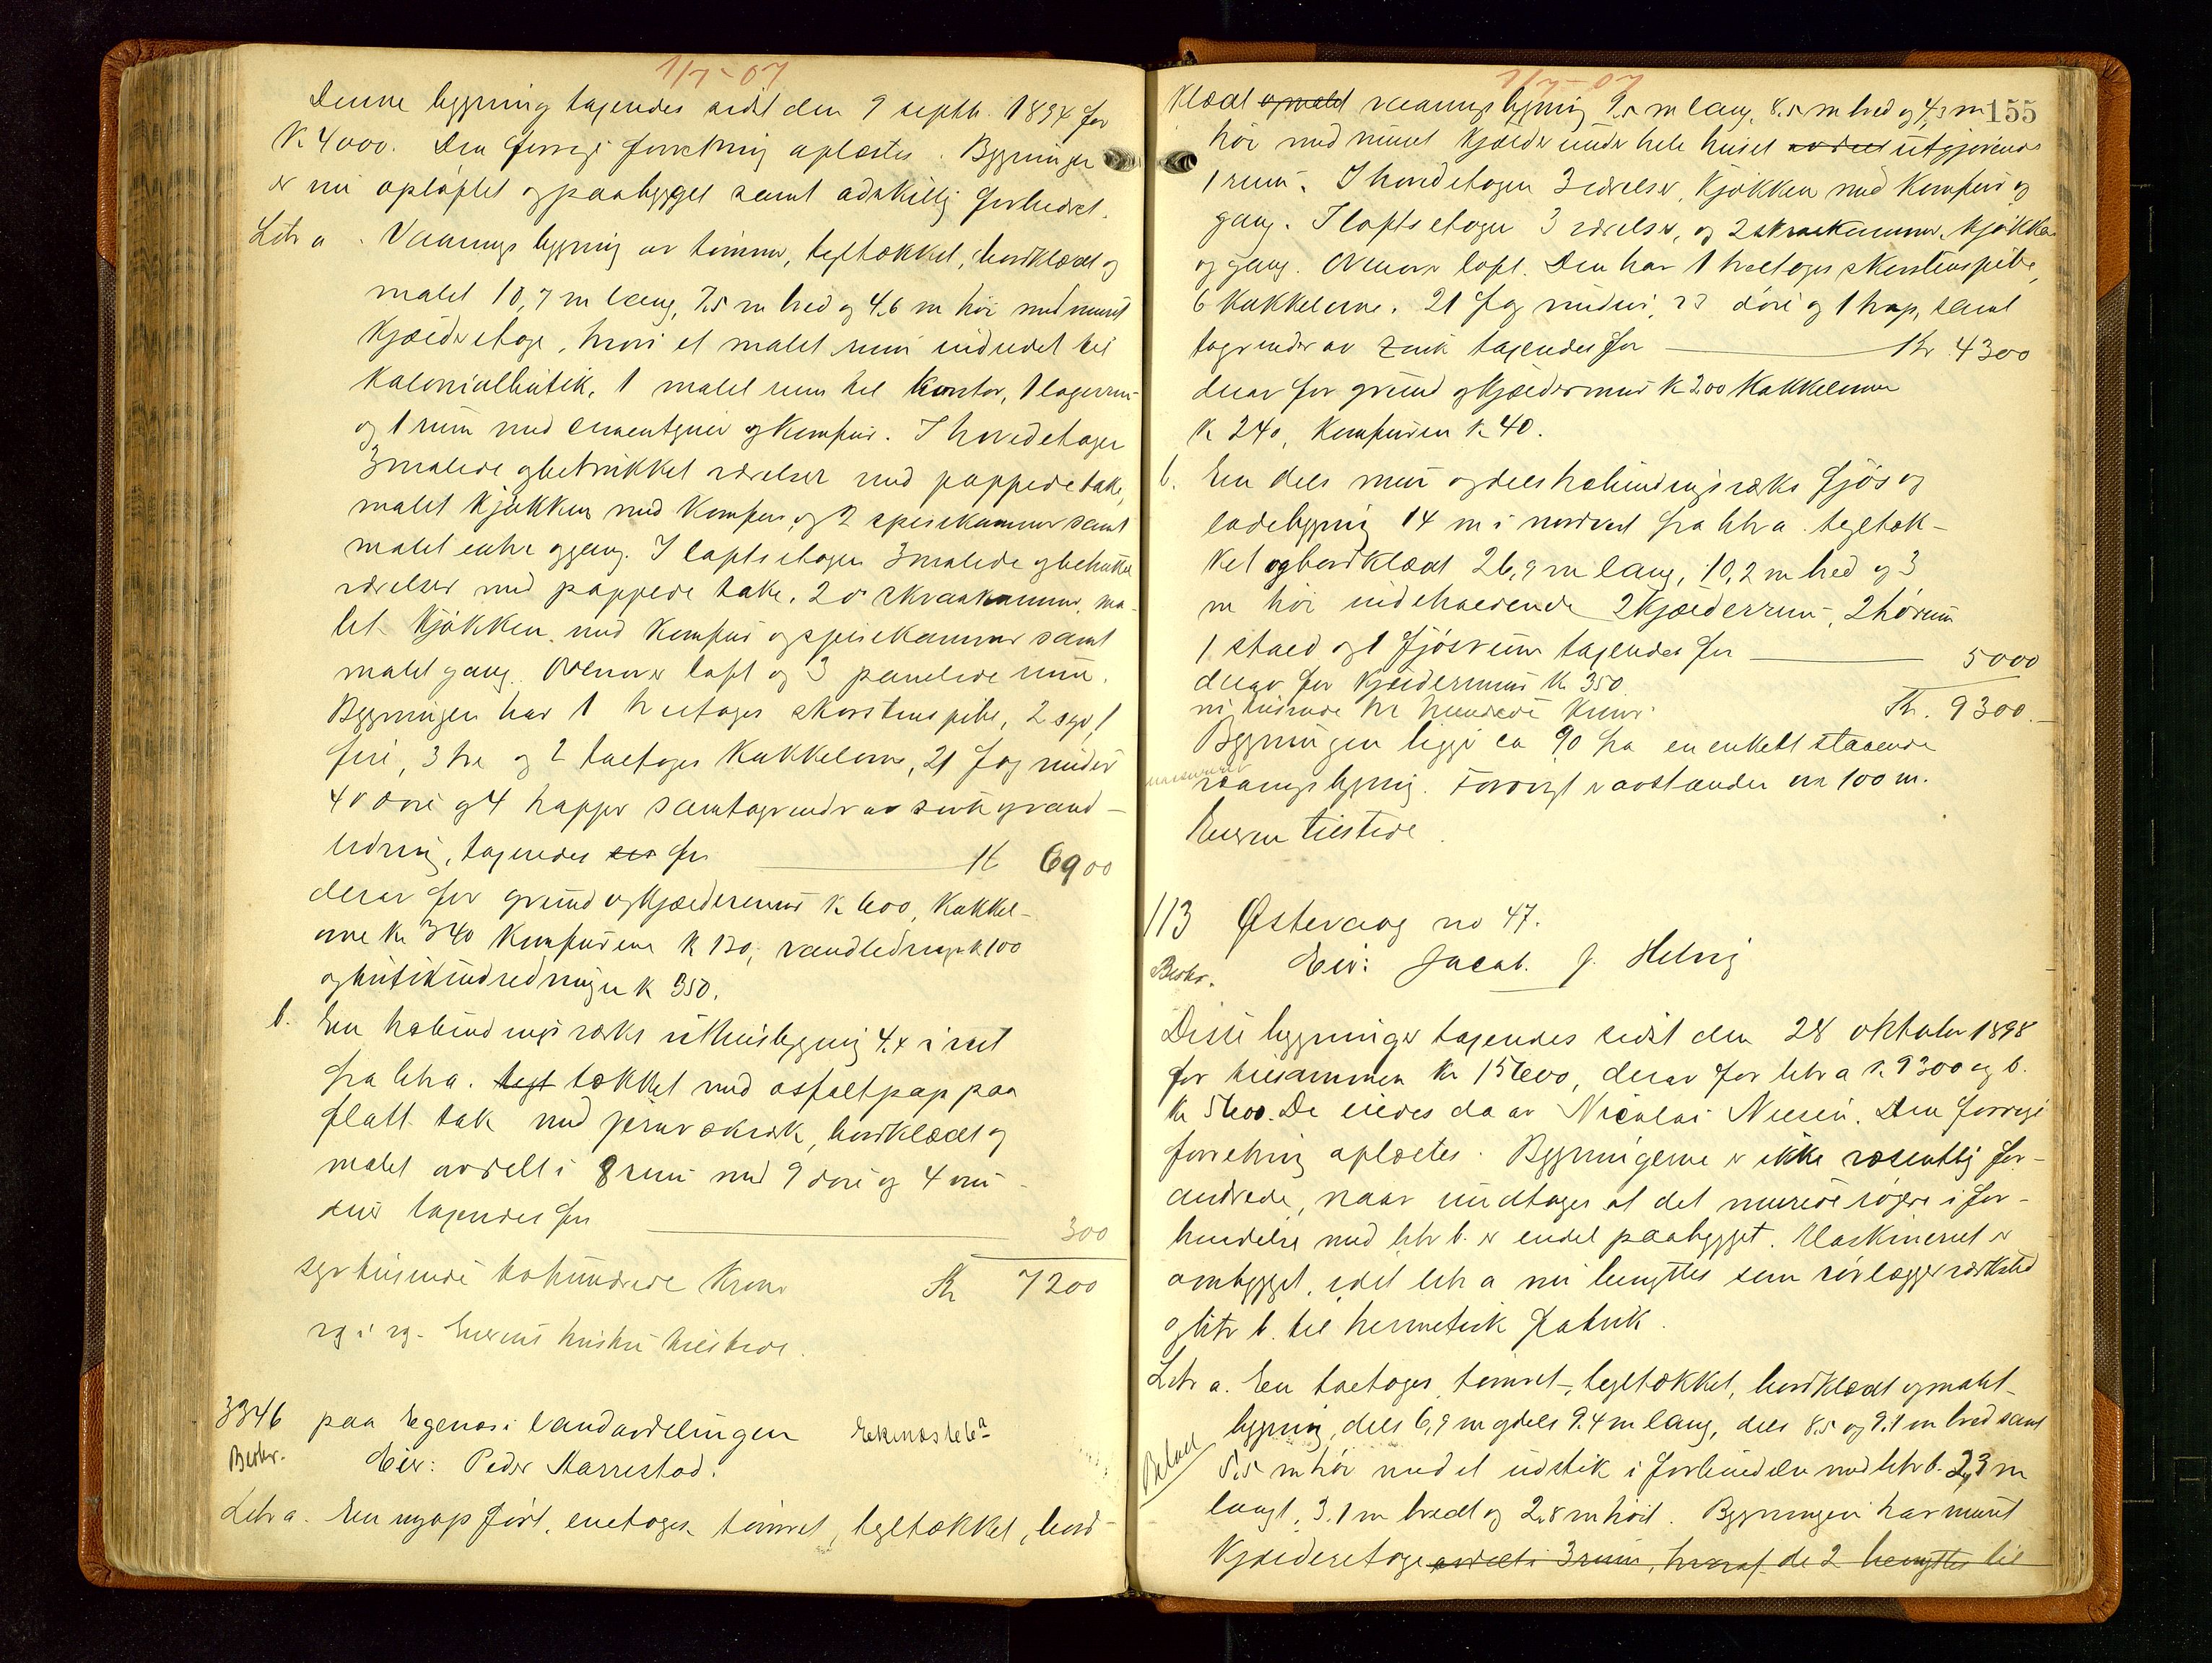 1/7-07
Denne bygning taxeredes sidst den 9 septbr. 1894 for
K 4000. Den forrige forretning oplæstes. Bygningen
er nu opløftet og paabygget samt adskillig forbedret.
Litr a. Vaanings bygning av tømmer, tegltækket, bordklædt og
malet 10,7 m lang, 7.5 m bred og 4.6 m høi med muret
kjælderetage, hvori et malet rum indredet til
kolonialbutik, 1 malet rum til kontor, 1 lagerrum
og 1 rum med cementgulv og komfur. I hovedetagen
3 malede og betrukket værelser med pappede take,
malet kjøkken med komfur og 2 spisekammer samt
malet entre og gang. I loftsetagen 3 malede og betrukke
værelser med pappede take, 2 do skraakammer, ma-
let kjøkken med komfur og spisekammer samt
malet gang. Ovenover loft og 3 panelede rum.
Bygningen har 1 treetages skorstenspibe, 2 syv, 1
fire, 3 tre og 2 toetages kakkelovne, 21 fag vinduer
40 døre og 4 trapper samt tagrender av sink og vand-
ledning, taxeredes for K 6900
derav for grund og kjældermur K 600, kakkel-
ovne Kr 340 komfurene K 130, vandledning K 100
og butikindredningen K 350.
b. En halvbindingsværks uthusbygning 4.4 i vest
fra litra. tegl tækket med asfaltpap paa
flatt tak med skraa, bordklædt og
malet avdelt i 8 rum med 9 døre og 4 vin-
duer taxeredes for 300
syvtusinde tohundrede Kroner Kr 7200
rg i rg. Eierens hustru tilstede.
3346 paa Egenæs i Landavdelingen Ekenæs 1616a
Beskr. Eier: Peder Harrestad.
Litr a. En nyopført, enetages tømret, tegltækket, bord-
1/7-07
155
klædt og malet vaaningsbygning 9,5 m lang, 8.5 m bred og 4,3 m
høi med muret kjælder under hele huset av deel utgjørende
1 rum. I hovedetagen 3 værelser, kjøkken med komfur og
gang. I loftsetagen 3 værelser, og 2 skraakammer, kjøkken
og gang. Ovenover loft. Den har 1 treetages skorstenspibe,
6 kakkelovne. 21 fag vinduer, 23 døre og 1 trap, samt
tagrender av zink taxeredes for Kr 4300
derav for grund og kjældermur K 200 Kakkelovne
K 240, Komfuren K 40.
b. En dels mur og dels halvbindingsværks fjøs og
ladebygning 14 m i nordvest fra litr a. tegltæk-
ket og bordklædt 26,9 m lang, 10,2 m bred og 3
m høi indeholdende 2 kjælderrum, 2 hørum
1 stald og 1 fjøsrum taxeredes for 5000
derav for kjældermur Kr 350.
ni tusinde tre hundrede Kroner Kr. 9300.
Bygningen ligger ca 90 fra en enkelt staaende
vaaningsbygning. Forøvrigt er avstanden over 100 m.
Eieren tilstede.
113 Østervaag no 47.
Beskr. Eier: Jacob. J. Helvig
Disse bygninger taxeredes sidst den 28 oktober 1898
for tilsammen Kr 15600, derav for litr a K. 9300 og b.
Kr 5600. De eiedes da av Nicolai Nielsen. Den forrige
forretning oplæstes. Bygningerne er ikke væsentlig for-
andrede, naar undtages at det murede røgeri i for-
bindelse med litr b. er endel paabygget. Maskineriet er
ombygget, idet litr a nu benyttes som rørlæggerværksted
og litr b. til hermetisk fabrik.
Litr a. En toetages tømret, tegltækket, bordklædt og malet
bygning, dels 6,9 m og dels 9.4 m lang, dels 8.5 og 9.1 m bred samt
5.5 m høi med et udstik i forbindelse med litr b. 2,3 m
langt, 3.1 m bredt og 2.8 m høit. Bygningen har muret
Kjælderetage avdelt i 3 rum, hvoraf de 2 benyttes til